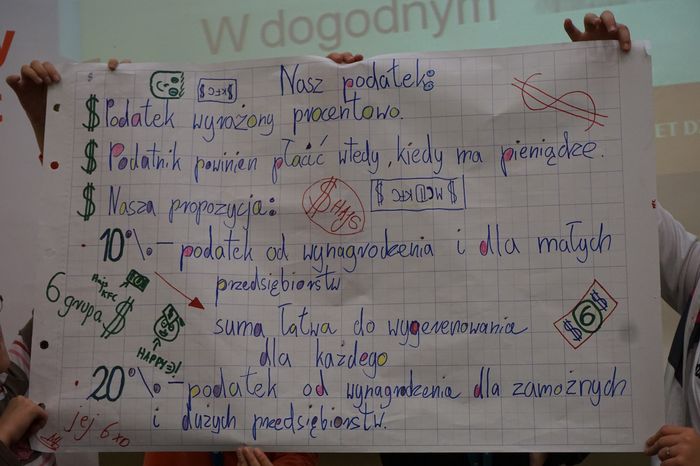 W dogodnym
ET D
$ KFC $
Nasz podatek:
$ Podatek wyrażony procentowo.
$ Podatnik powinien płacić wtedy, kiedy ma pieniądze.
$ Nasza propozycja:
$ HAJS
$ MCD KFC $
10% – podatek od wynagrodzenia i dla małych
przedsiębiorstw
6 grupa
KFC
$
suma łatwa do wygenerowania
dla każdego
$ 6 $
HAPPY
20% – podatek od wynagrodzenia dla zamożnych
i dużych przedsiębiorstw.
jej 6 xo